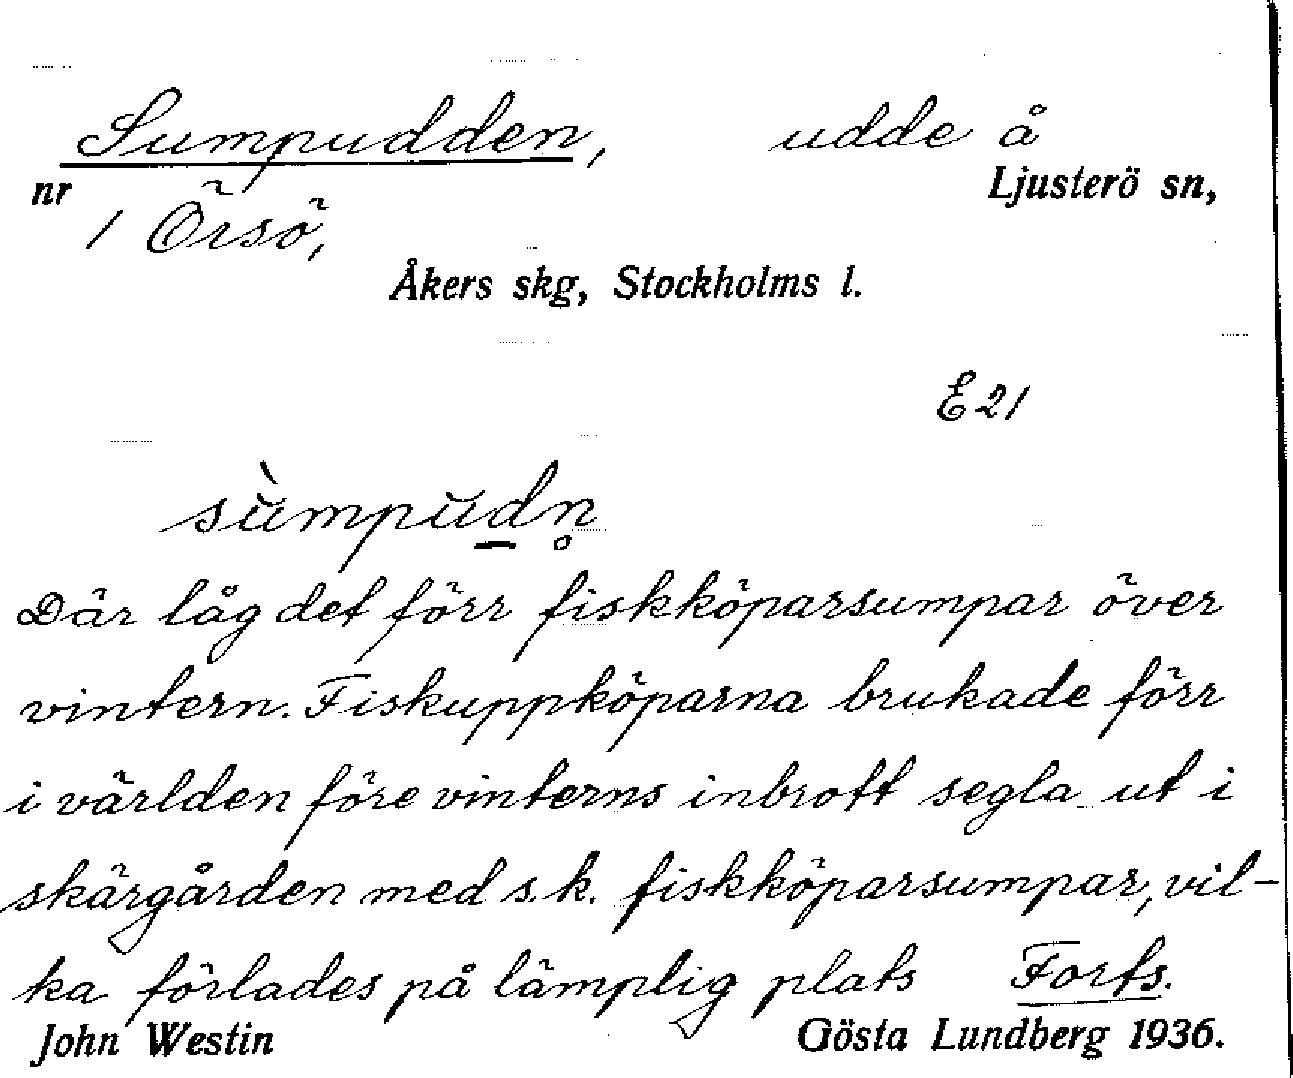 Sumpudden, udde å
nr 1 Örsö, Ljusterö sn,
Åkers skg, Stockholms l.
E 21
sùmpŭdn̥
Där låg det förr fiskköparsumpar över
vintern. Fiskuppköparna brukade förr
i världen före vinterns inbrott segla ut i
skärgården med s.k. fiskköparsumpar, vil-
ka förlades på lämplig plats Forts.
John Westin Gösta Lundberg 1936.